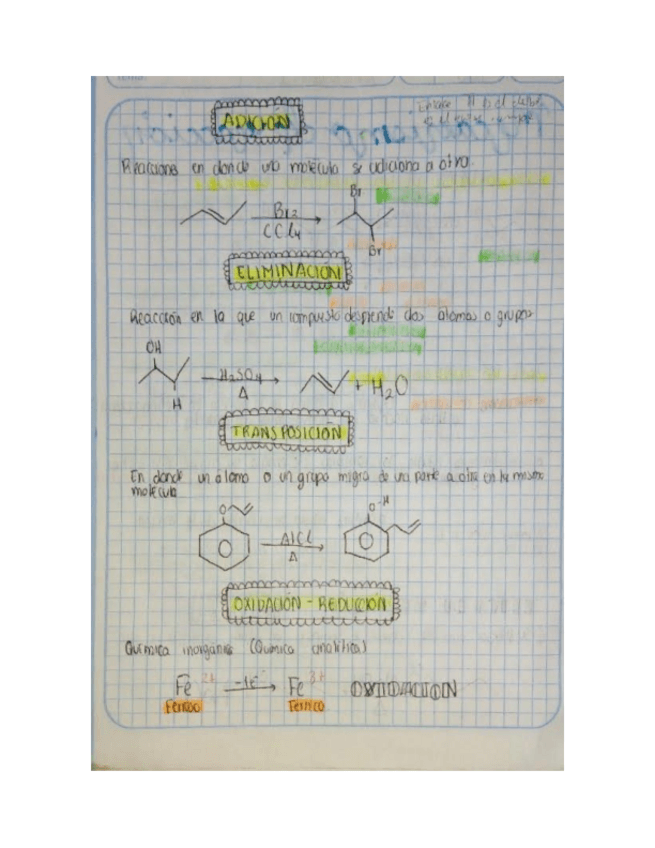 ADICIÓN
Reacciones en donde una molécula se adiciona a otra.
Br
Br2
CCl4
Br
ELIMINACIÓN
Reacción en la que un compuesto desprende dos átomos o grupos
OH
H2SO4
Δ
+ H2O
H
TRANSPOSICIÓN
En donde un átomo o un grupo migra de una parte a otra en la misma
molécula
O
O-H
AlCl
Δ
OXIDACIÓN - REDUCCIÓN
Química inorgánica (Química analítica)
Fe 2+ -1e- Fe 3+ OXIDACIÓN
Ferroso Férrico